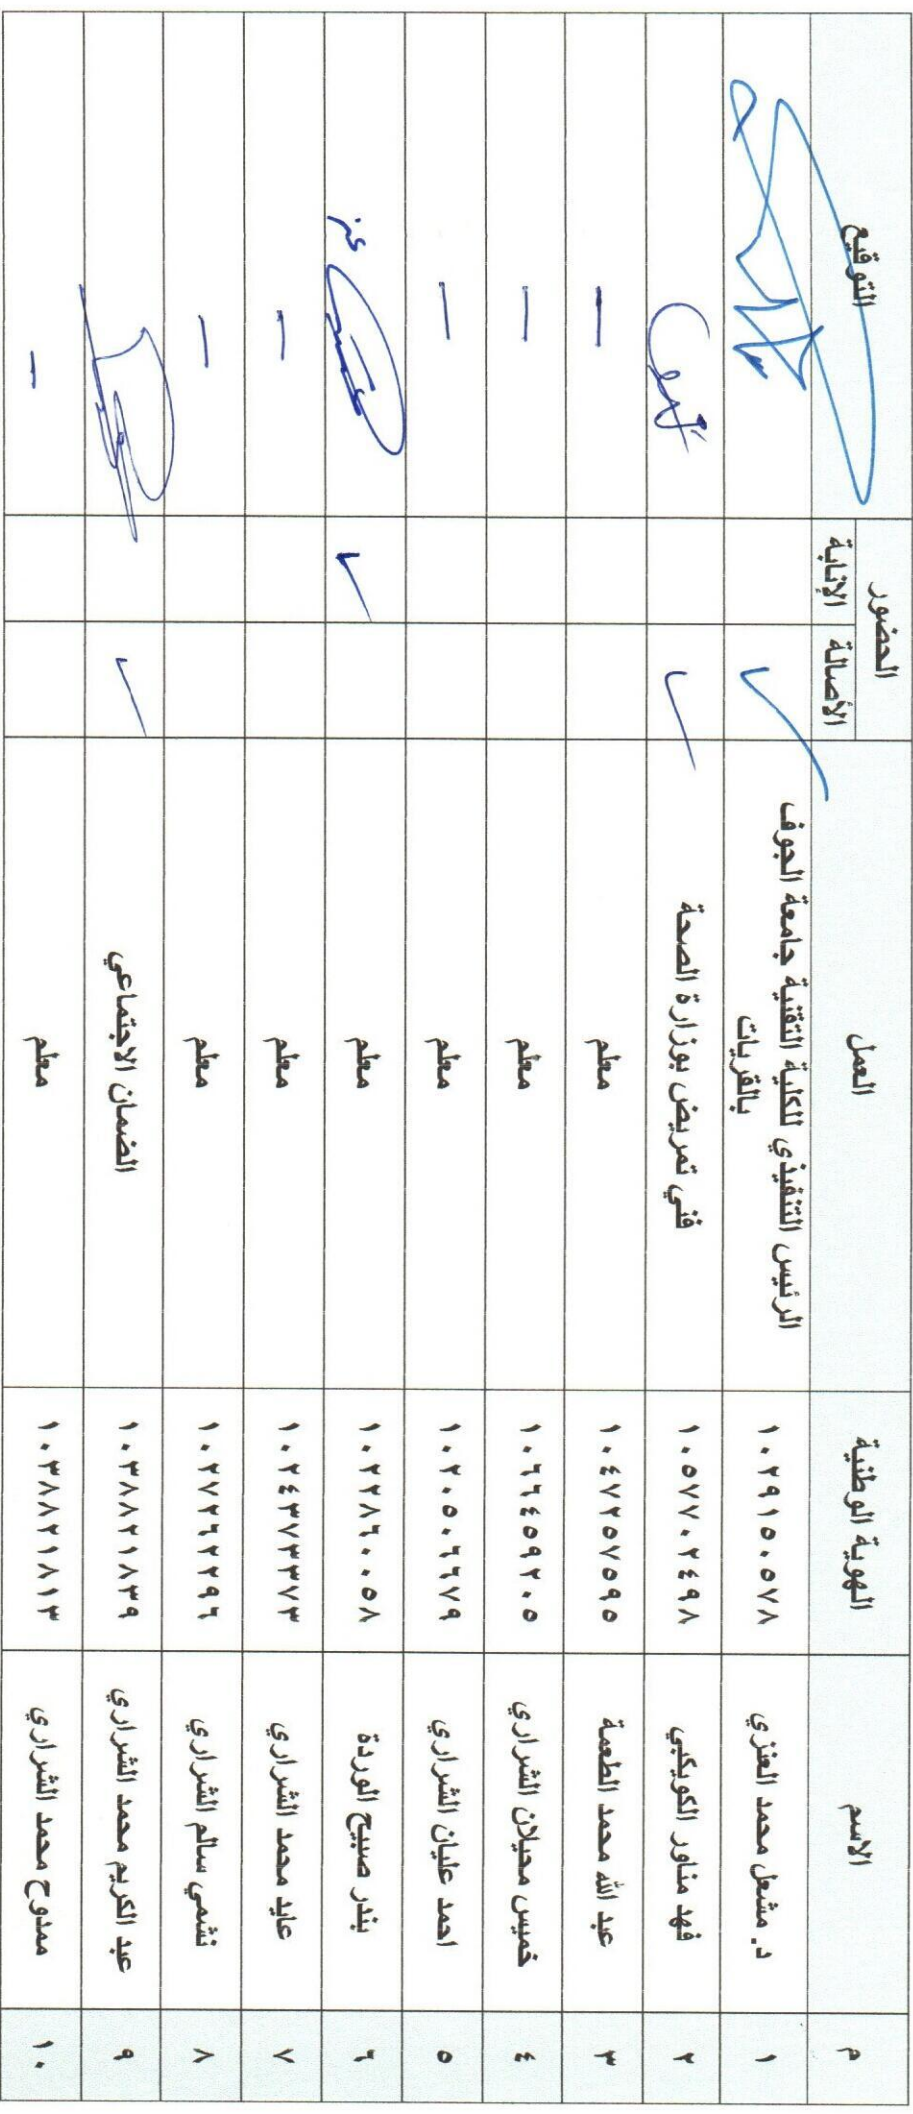 م الاسم الهوية الوطنية العمل الحضور التوقيع
الأصالة الإنابة
١ د. مشعل محمد العنزي ١٠٢٩١٥٠٥٧٨ الرئيس التنفيذي للكلية التقنية جامعة الجوف
بالقريات ✓
٢ فهد مناور الكويكبي ١٠٥٧٧٠٢٤٩٨ فني تمريض بوزارة الصحة ✓
٣ عبد الله محمد الطعمة ١٠٤٧٢٥٧٥٩٥ معلم —
٤ خميس محيلان الشراري ١٠٦٦٤٥٩٢٠٥ معلم —
٥ احمد عليان الشراري ١٠٢٠٥٠٦٦٧٩ معلم —
٦ بندر صبيح الوردة ١٠٢٢٨٦٠٠٥٨ معلم ✓
٧ عايد محمد الشراري ١٠٢٤٣٧٣٣٧٣ معلم —
٨ نشمي سالم الشراري ١٠٢٧٢٦٢٢٩٦ معلم —
٩ عبد الكريم محمد الشراري ١٠٣٨٨٢١٨٣٩ الضمان الاجتماعي ✓
١٠ ممدوح محمد الشراري ١٠٣٨٨٢١٨١٣ معلم —